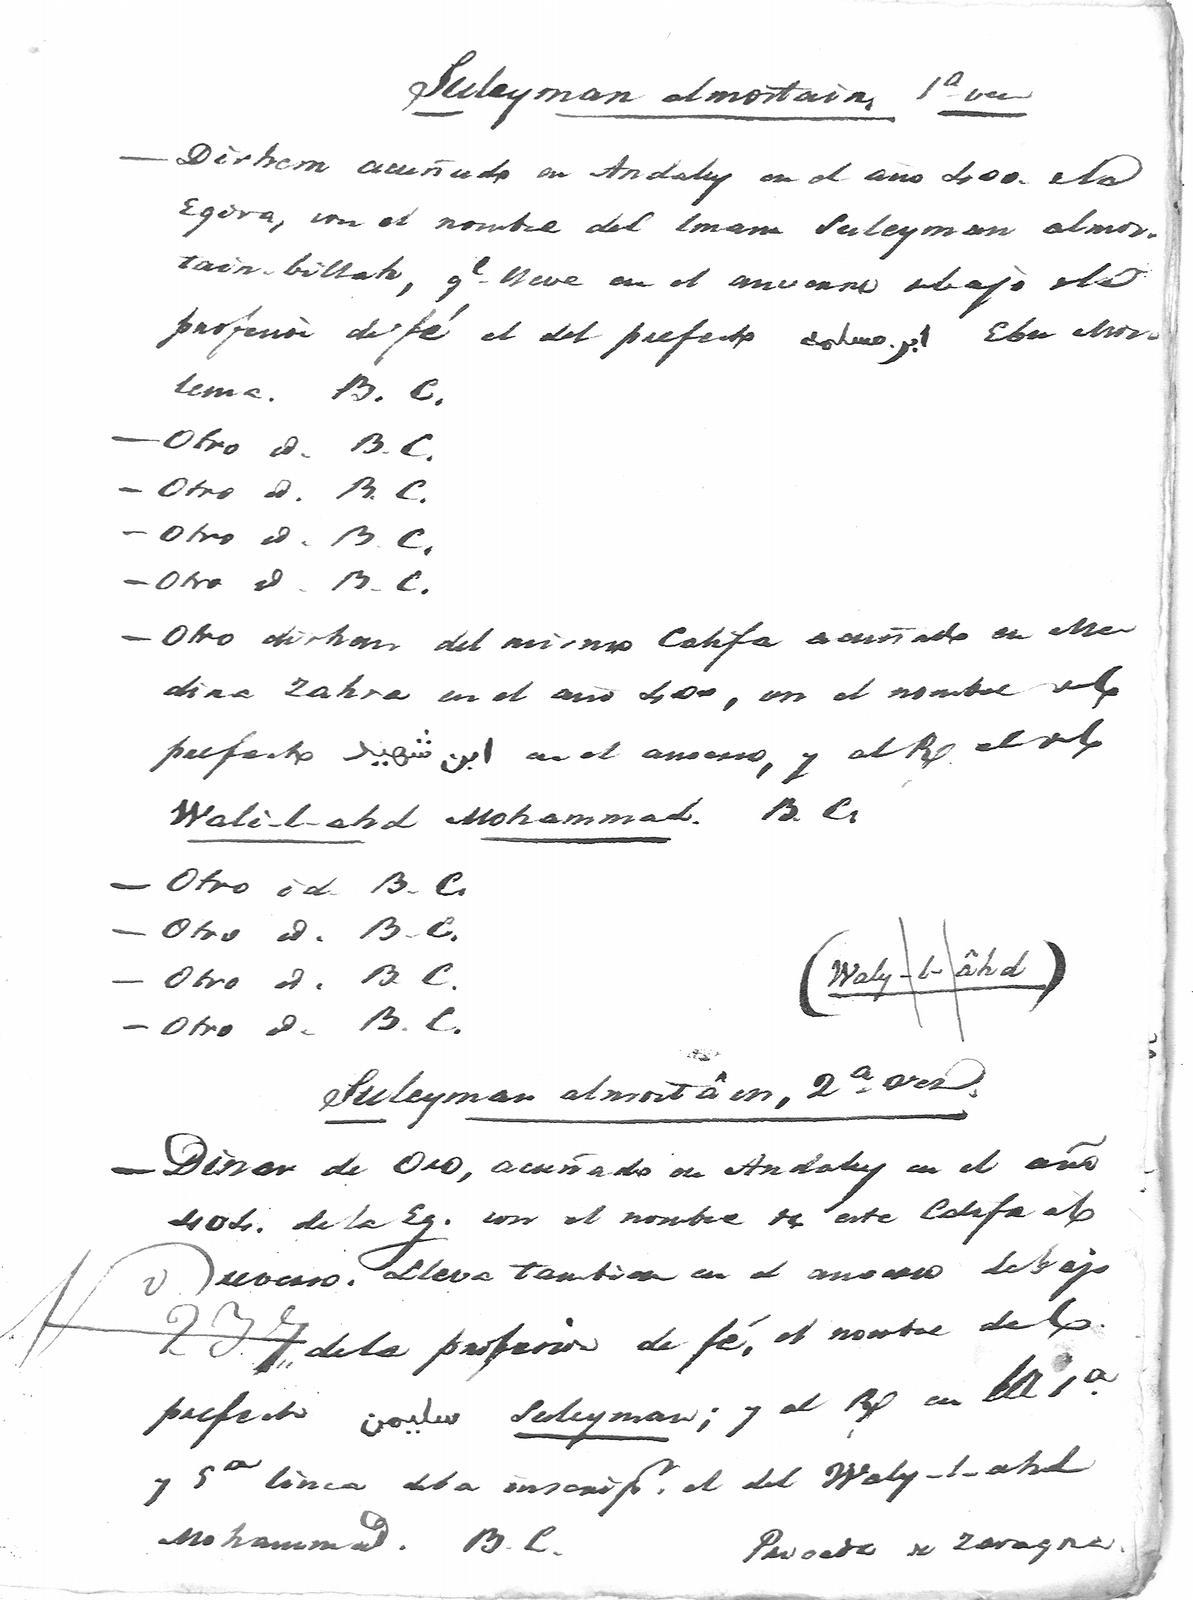 Suleyman almostain, 1ª vez
— Dirhem acuñado en Andaluy en el año 400. de la
Egira, con el nombre del Imam Suleyman almos-
tain-billah, q.e lleve en el anverso debajo de la
profesion de fé el del prefecto ابن مسلمه Ebn Mos-
lema. B. C.
— Otro id. B. C.
— Otro id. B. C.
— Otro id. B. C.
— Otro id. B. C.
— Otro dirhem del mismo Califa acuñado en Me-
dina Zahra en el año 400, con el nombre del
prefecto ابن شهيد en el anverso, y al R/ el del
Wali-l-ahd Mohammad. B. C.
— Otro id. B. C.
— Otro id. B. C.
— Otro id. B. C.
— Otro id. B. C.
(Waly-l-âhd)
Suleyman almostâin, 2ª vez.
— Dinar de Oro, acuñado en Andaluy en el año
404. de la Eg. con el nombre de este Califa al
reverso. Lleva tambien en el anverso debajo
237 de la profesion de fé, el nombre del
prefecto سليمن Suleyman; y al R/ en la 1ª
y 5ª linea de la inscrip.n el del Waly-l-ahd
Mohammad. B. C. Procede de Zaragoza.